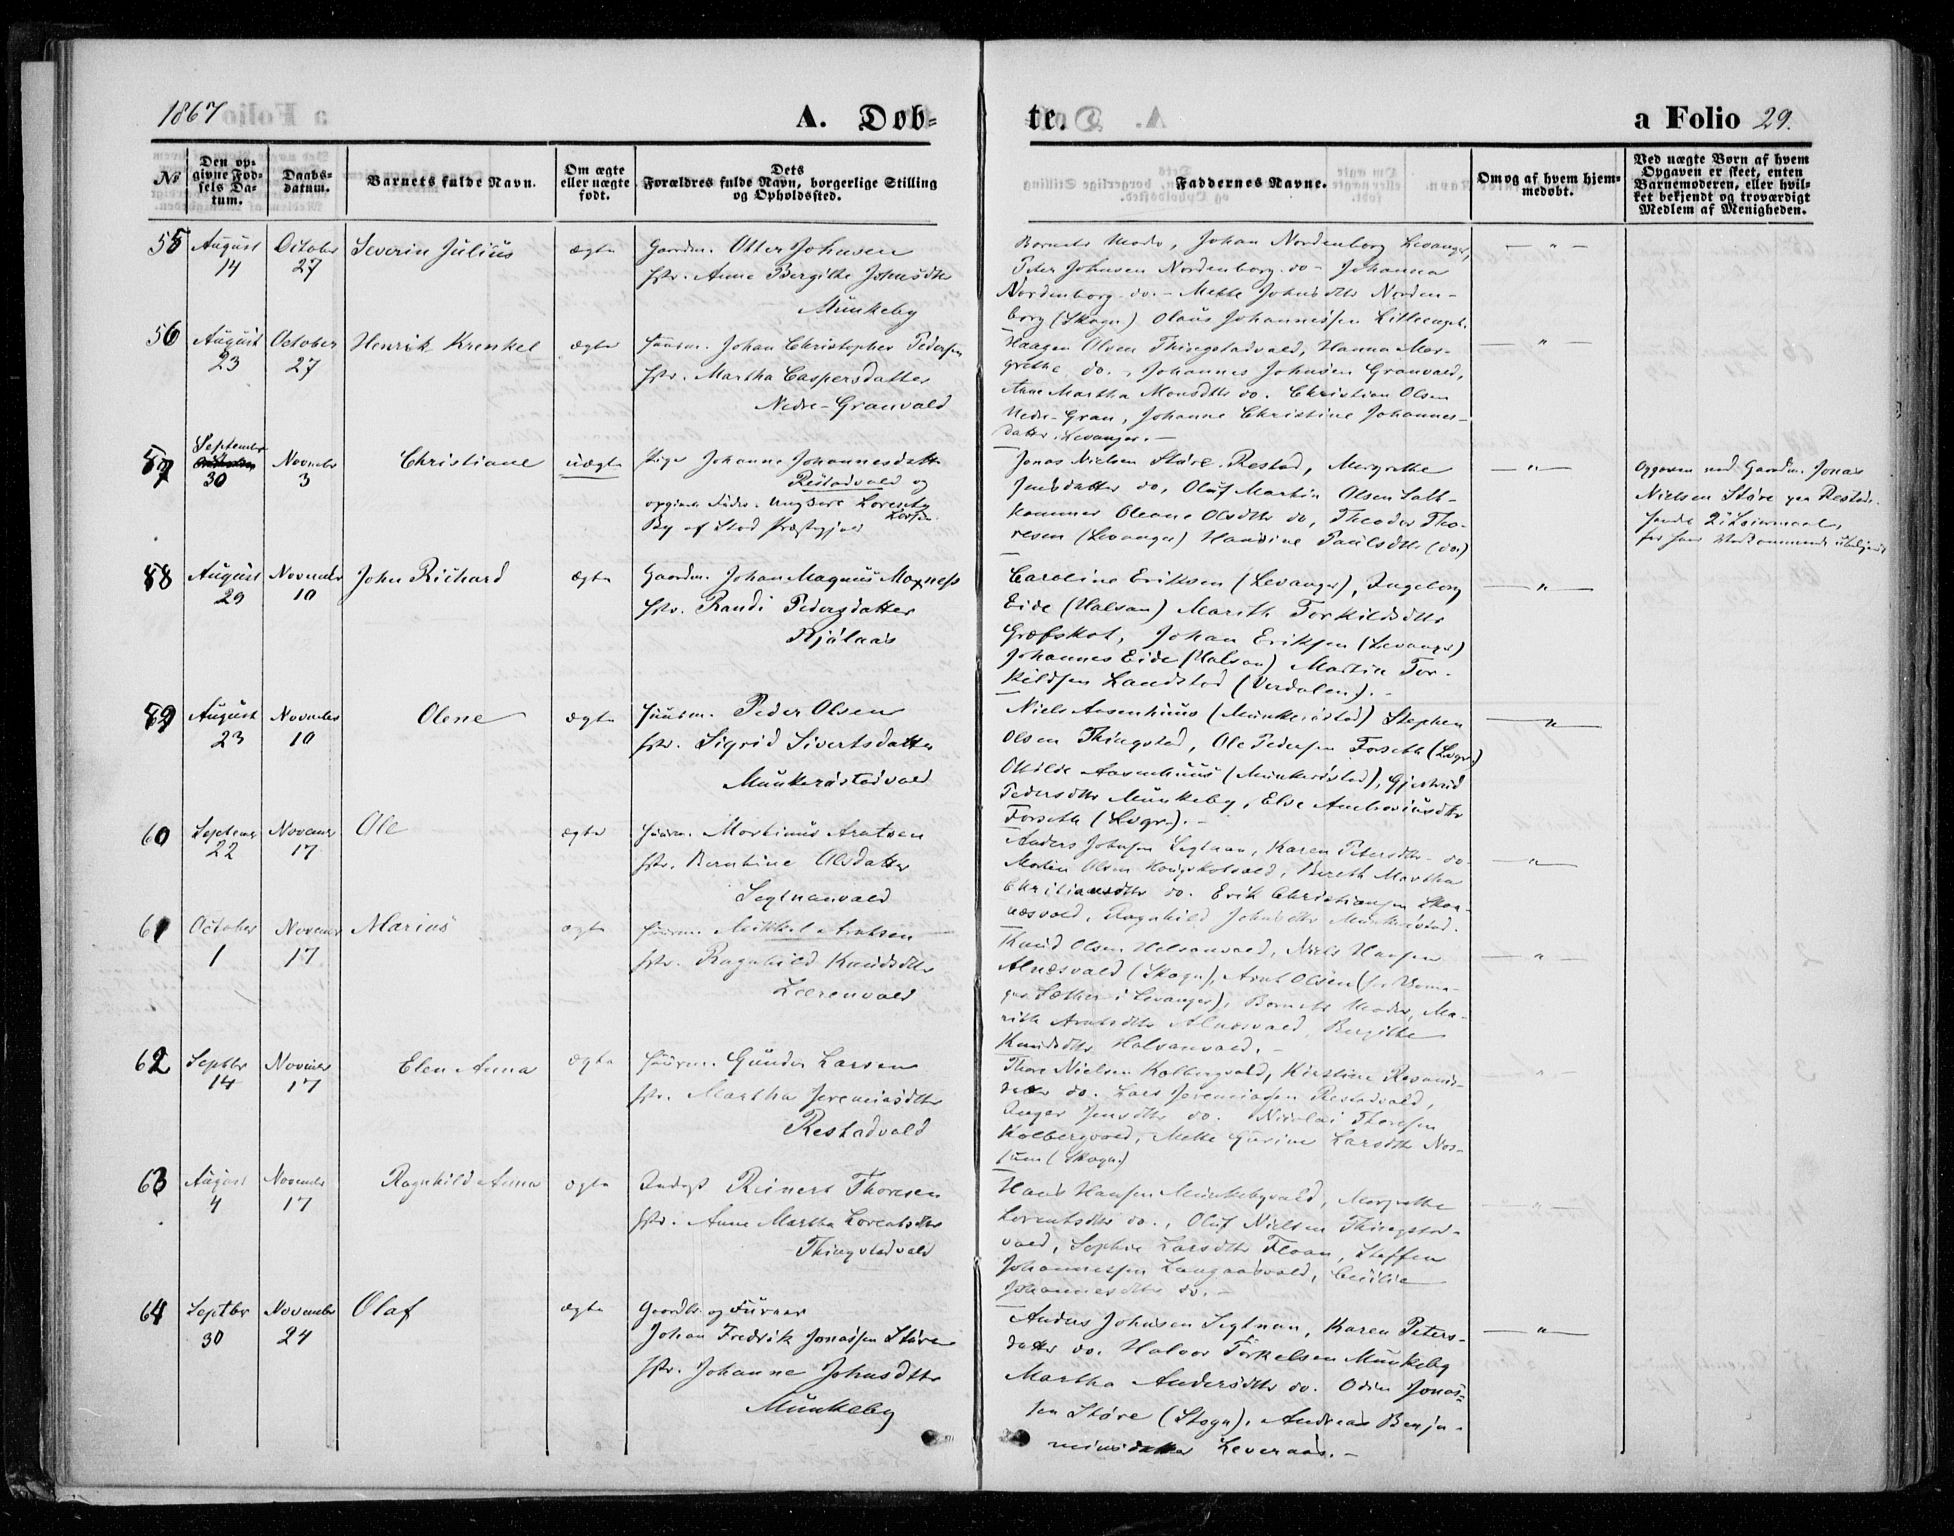 1867
A. Døb-
te.
a Folio 29.
No
Den op-
givne Fød-
sels Da-
tum.
Daabs-
datum.
Barnets fulde Navn.
Om ægte
eller uægte
født.
Dets
Forældres fulde Navn, borgerlige Stilling
og Opholdssted.
Faddernes Navne.
Om og af hvem hjem-
medøbt.
Ved uægte Børn af hvem
Opgaven er skeet, enten
Barnemoderen, eller hvil-
ket bekjendt og troværdigt
Medlem af Menigheden.
55 August 14 October 27 Severin Julius ægte
Gaardm. Otter Johnsen
Hstr. Anne Bergithe Johnsdtr
Munkeby
Barnets Moder, Johan Nordenborg Levanger,
Peter Johnsen Nordenborg do - Johanna
Nordenborg do. - Mette Johnsdtr Norden-
borg (Skogn) Olaus Johannessen
— " —
56 August 23 October 27 Henrik Krenkel ægte
Huusm. Johan Christopher Pedersen
Hstr. Martha Caspersdatter
Nedre-Granvald
Haagen Olsen Thingstadvald, Hanna Mar-
grethe do. Johannes Johnsen Granvald,
Anne Martha Monsdtr do. Christian Olsen
Nedre-Gran, Johanne Christine Johannes-
datter Levanger. -
— " —
57 September 30 November 3 Christiane uægte
Pige Johanne Johannesdatter
Restadvald og
Jonas Nielsen Støre Restad, Margrethe
Jensdatter do, Oluf Martin Olsen
Oleane Olsdtr do, Theodor Tho-
resen (Levanger) Hansine Paulsdtr (do)
— " —
Opgaven ved Gaardm. Jonas
Nielsen Støre paa Restad.
58 August 29 November 10 John Richard ægte
Gaardm. Johan Magnus Moxness
Hstr. Randi Pedersdatter
Kjølaas
Caroline Eriksen (Levanger), Ingeborg
Eide (Halsan) Marith Torkildsdtr
Græfskot, Johan Eriksen (Levanger)
Johannes Eide (Halsan) Martin Tor-
kildsen Landstad (Verdalen). -
— " —
59 August 23 November 10 Olene ægte
Huusm. Peder Olsen
Hstr. Sigrid Sivertsdatter
Munkerøstadvald
Niels Aasenhuus (Munkerøstad) Stephen
Olsen Thingstad, Ole Pedersen Forseth (Lvgr)
Otilde Aasenhuus (Munkerøstad), Gjertrud
Pedersdtr Munkeby, Else Ambrosiusdtr
Forseth (Lvgr). -
— " —
60 September 22 November 17 Ole ægte
Huusm. Martinus Arntsen
Hstr. Berntine Olsdatter
Segtnanvald
Anders Johnsen Segtnan, Karen Petersdtr do
Martin Olsen Bereth Martha
Christiansdtr do. Erik Christiansen
Ragnhild Johnsdtr Munkerøstad.
— " —
61 October 1 November 17 Marius ægte
Huusm. Mikkel Arntsen
Hstr. Ragnhild Knudsdtr
Knud Olsen Halsanvald, Niels Hansen
Alnæsvald (Skogn), Arnt Olsen
Sæther i Levanger), Barnets Moder, Ma-
rith Arntsdtr Alnæsvald, Bergithe
Knudsdtr Halsanvald. -
— " —
62 Septbr 14 November 17 Elen Anna ægte
Huusm. Gunder Larsen
Hstr. Martha Jeremiasdtr
Restadvald
Thore Nielsen Kolbergvald, Kirstine
datter do. Lars Jeremiassen Restadvald,
Inger Jensdtr do. Nicolai Thoresen
Kolbergvald, Mette Gurine Larsdtr Nos-
sum (Skogn)
— " —
63 August 4 November 17 Ragnhild Anna ægte
Inderst Reinert Thoresen
Hstr. Anne Martha Lorentsdtr
Thingstadvald
Hans Hansen Munkebyvald, Margrethe
Lorentsdtr do., Oluf Nielsen Thingstad-
vald, Sophie Larsdtr Floan, Steffen
Johannessen Langaasvald, Cecilie
Johannesdtr do. -
— " —
64 Septbr 30 November 24 Olaf ægte
Gaardbr. og Furer
Johan Fredrik Jonassen Støre
Hstr. Johanne Johnsdtr
Munkeby
Anders Johnsen Segtnan, Karen Peters-
datter do. Halvor Torkelsen Munkeby
Martha Andersdtr do. Odin Jonas-
sen Støre (Skogn), Andrea Benja-
minsdatter Leveraas. -
— " —